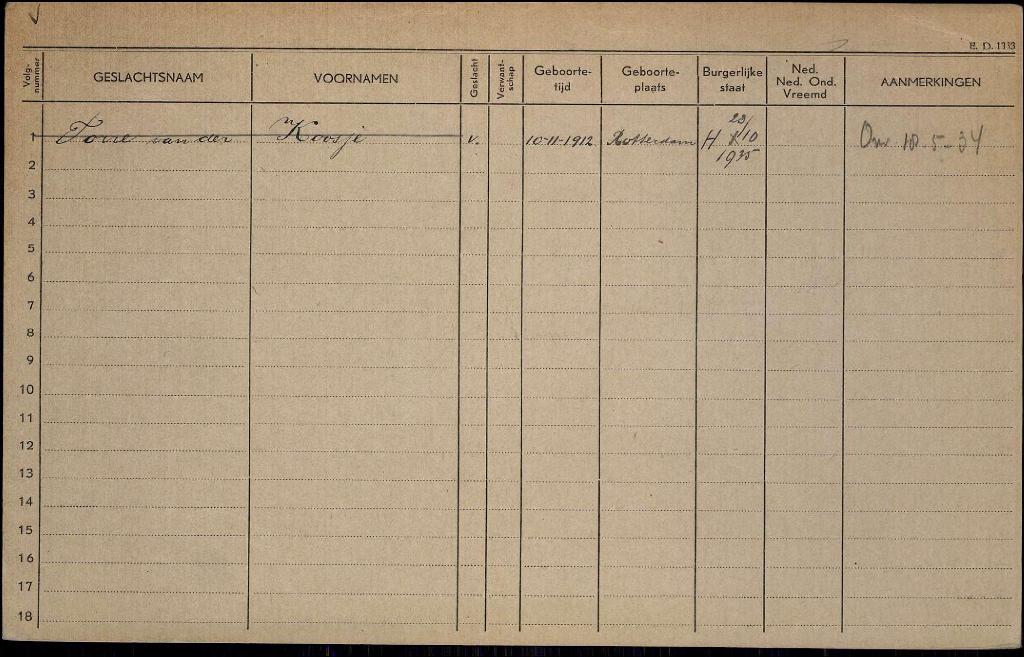 E. D. 1333
Volg-nummer GESLACHTSNAAM VOORNAMEN Geslacht Verwant-schap Geboorte-tijd Geboorte-plaats Burgerlijke staat Ned. Ned. Ond. Vreemd AANMERKINGEN
1 van der Koosje v. 10-11-1912 Rotterdam H 10 1935 10-5-34
2
3
4
5
6
7
8
9
10
11
12
13
14
15
16
17
18